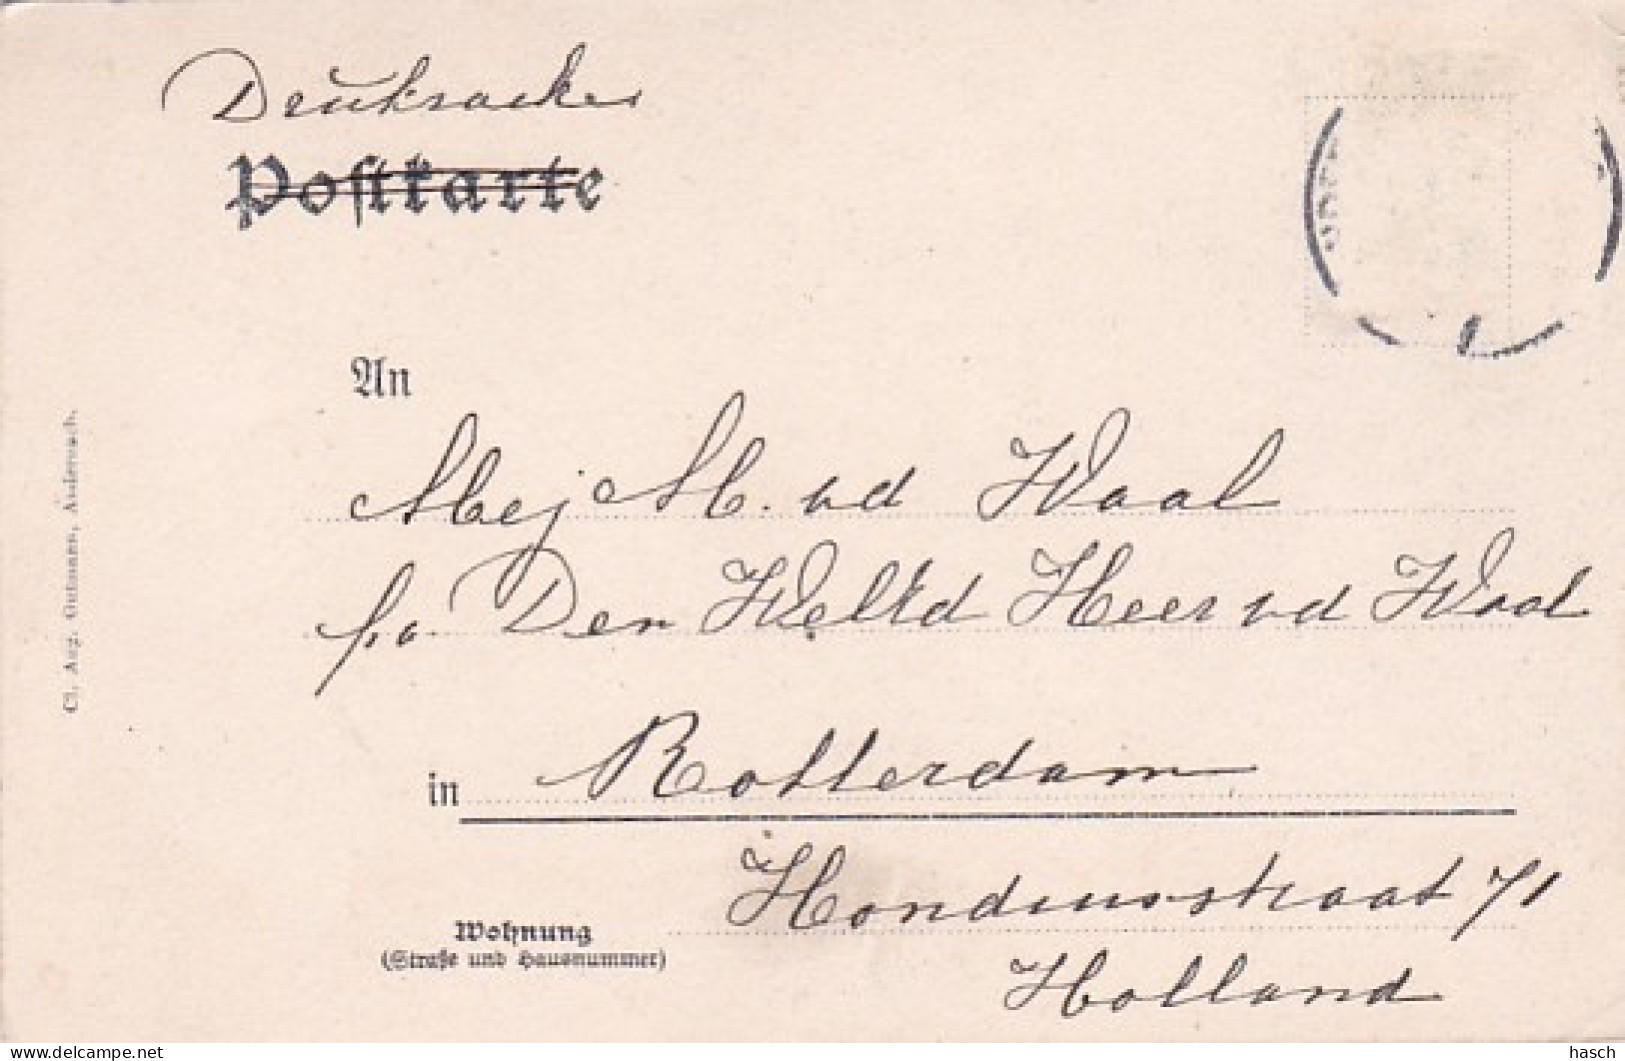 Drucksache
Postkarte
An
Mej M. vd Waal
p/a. Den WelEd Heer vd Waal
in Rotterdam
Hondiusstraat 71
Wohnung
(Straße und Hausnummer)
Holland
Cl. Aug. Gutmann, Andernach.
www.delcampe.net
hasch